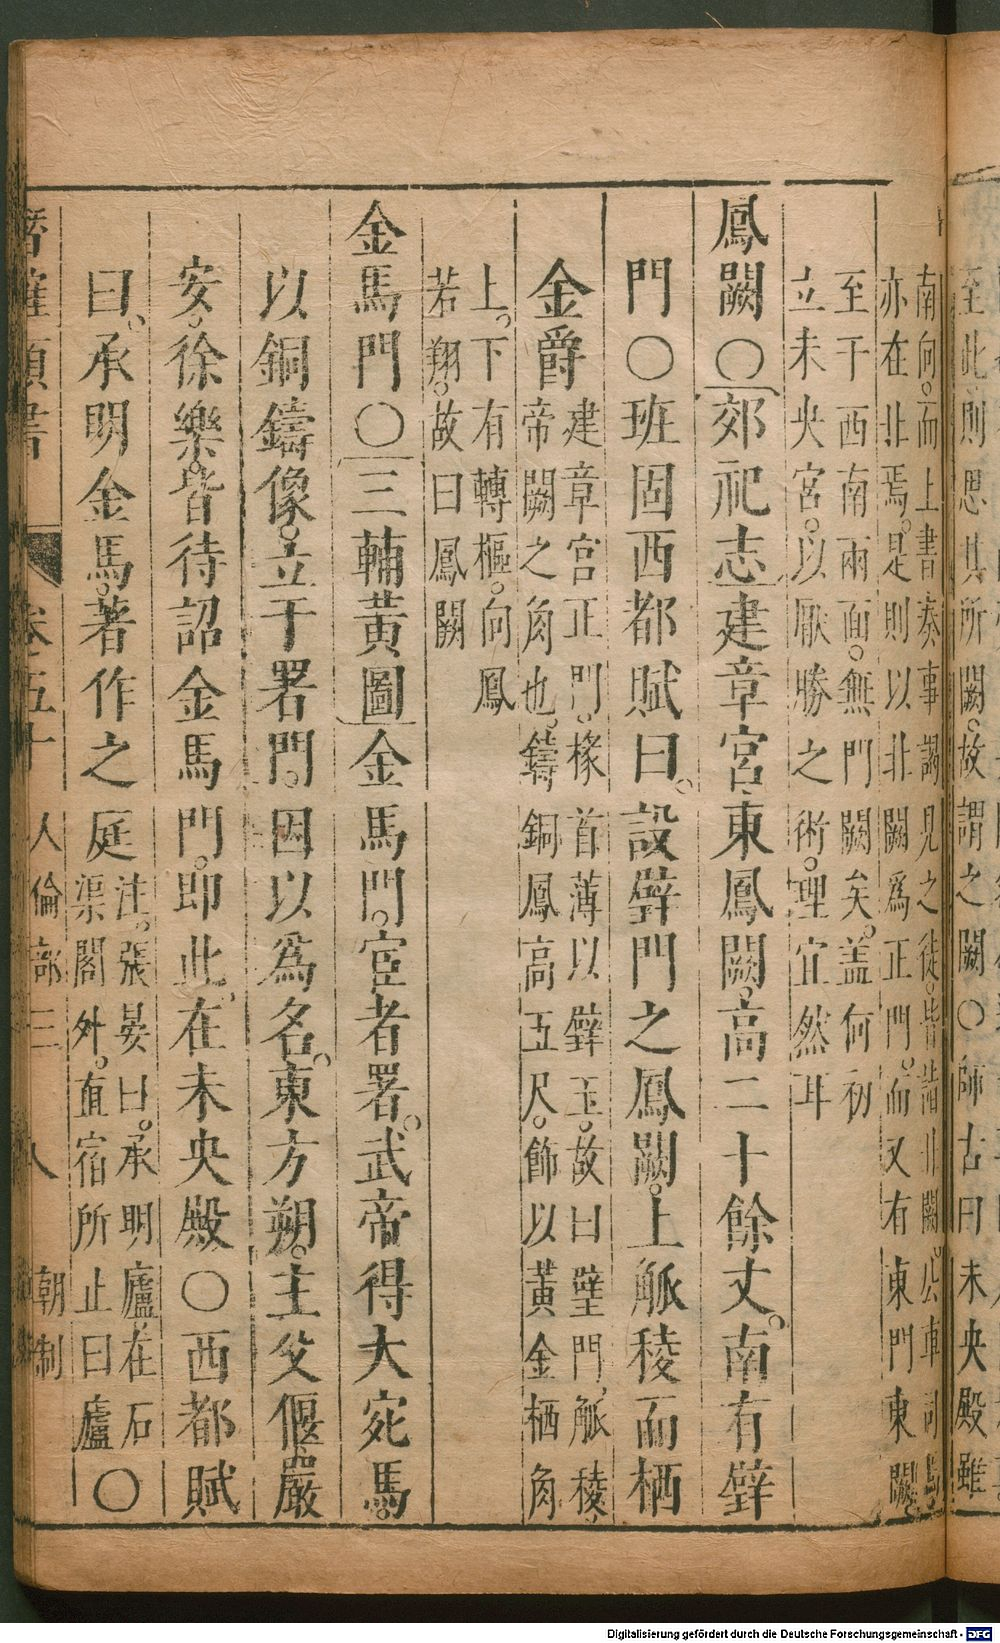 南向。而上書奏事謁見之徒。皆詣北闕。公車司馬
亦在北焉。是則以北闕爲正門。而又有東門東闕。
至于西南兩面。無門闕矣。蓋何初
立未央宮。以厭勝之術。理宜然耳
鳳闕○郊祀志建章宮東鳳闕。高二十餘丈。南有壁
門○班固西都賦曰。設壁門之鳳闕。上觚稜而栖
金爵
建章宮正門。椽首薄以璧玉。故曰璧門觚稜、
帝闕之角也。鑄銅鳳高五尺。飾以黃金栖角
上。下有轉樞。向鳳
若翔。故曰鳳闕
金馬門○三輔黃圖金馬門。宦者署。武帝得大宛馬。
以銅鑄像。立于署門。因以爲名。東方朔。主父偃。嚴
安。徐樂。皆待詔金馬門。即此。在未央殿○西都賦
曰。承明金馬。著作之庭
注。張晏曰。承明廬在石
渠閣外。直宿所止曰廬
○
卷五十 人倫部三 八 朝制
至此則思其所闕。故謂之闕○師古曰未央殿雖
Digitalisierung gefördert durch die Deutsche Forschungsgemeinschaft - DFG